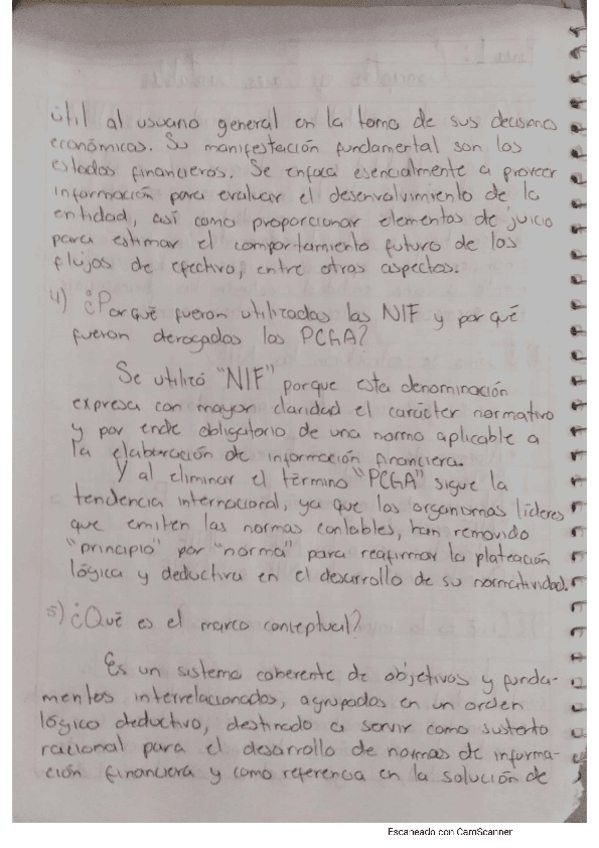 útil al usuario general en la toma de sus decisiones
económicas. Su manifestación fundamental son los
estados financieros. Se enfoca esencialmente a proveer
información para evaluar el desenvolvimiento de la
entidad, así como proporcionar elementos de juicio
para estimar el comportamiento futuro de los
flujos de efectivo, entre otros aspectos.
4) ¿Por qué fueron utilizadas las NIF y por qué
fueron derogados los PCGA?
Se utilizó "NIF" porque esta denominación
expresa con mayor claridad el carácter normativo
y por ende obligatorio de una norma aplicable a
la elaboración de información financiera.
Y al eliminar el término "PCGA" sigue la
tendencia internacional, ya que los organismos líderes
que emiten las normas contables, han removido
"principio" por "norma" para reafirmar la plateación
lógica y deductiva en el desarrollo de su normatividad.
5) ¿Qué es el marco conceptual?
Es un sistema coherente de objetivos y funda-
mentos interrelacionados, agrupados en un orden
lógico deductivo, destinado a servir como sustento
racional para el desarrollo de normas de informa-
ción financiera y como referencia en la solución de
Escaneado con CamScanner